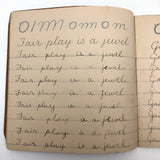 Fair play is a jewel
Fair play is a jewel
Fair play is a jewel
Fair play is a jewel
Fair play is a jewel
Fair play is a jewel
Fair play is a jewel
Fair play is a jewel